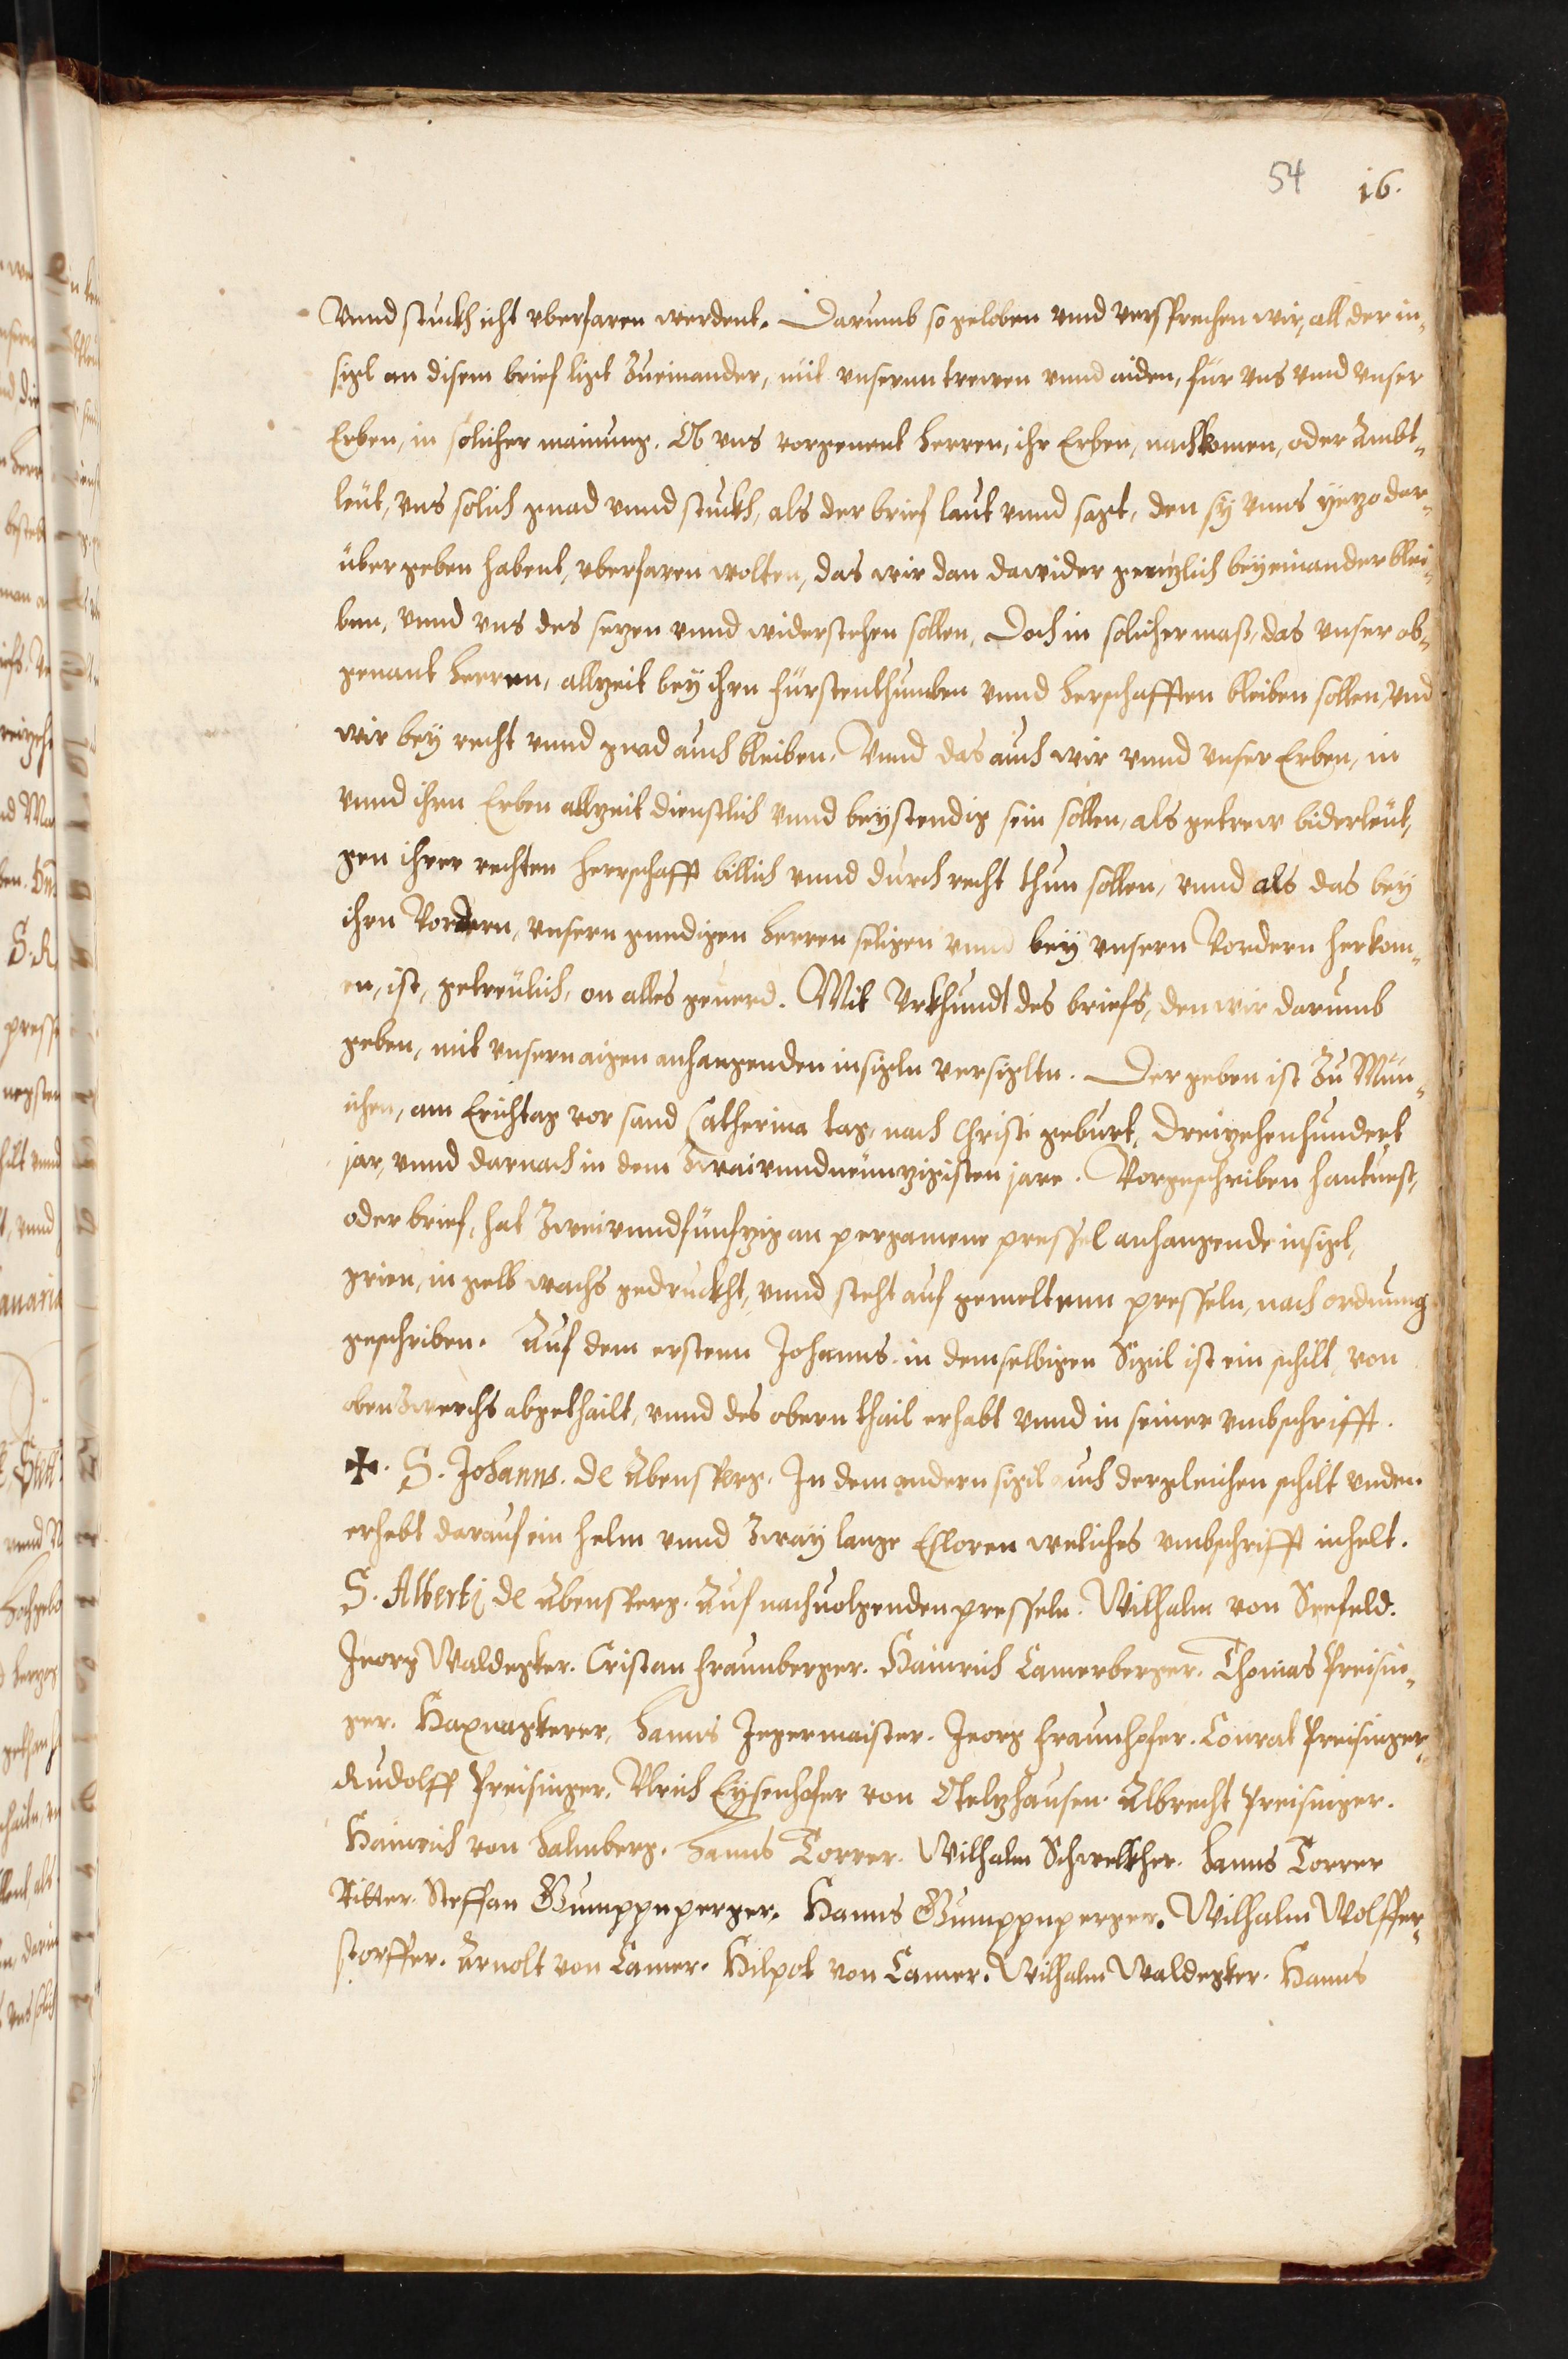 54 16.
Vnnd stuckh icht vberfaren werdent. Darumb so geloben vnnd versprechen wir, all der in-
sigl an disem brief ligt Zueinander, mit vnsernn trewen vnnd aiden, für vns vnnd vnser
Erben, in solicher mainung. Ob vns vorgenent herren, ihr Erben, nachkomen, oder Ambt-
leüt, vns solich gnad vnnd stuckh, als der brief laut vnnd sagt, den sy vnns yezo dar-
über geben habent, vberfaren wolten, das wir dan dawider genzlich beyeinander blei-
ben, vnnd vns des sezen vnnd widerstehen sollen, Doch in solicher maß, das vnser ob-
genant herren, allzeit bey ihrn fürstenthumben vnnd herschafften bleiben sollen, vnd
wir bey recht vnnd gnad auch bleiben. Vnnd das auch wir vnnd vnser Erben, in
vnnd ihrn Erben allzeit dienstlich vnnd beystendig sein sollen, als getrew biderleüt,
gen ihrer rechten herrschafft billich vnnd durch recht thun sollen, vnnd als das bey
ihrn Vordern, vnsern gnedigen herren seligen vnnd bey vnsern Vordern herkom-
en, ist, getreülich, on alles geuerd. Mit Vrkhundt des briefs, den wir darumb
geben, mit vnsern aigen anhangenden insigeln versigltn. Der geben ist Zu Mün-
ichen, am Erichtag vor sand Catherina tag, nach Christi geburt, Dreizehenhundert
jar, vnnd darnach in dem Zwaivnndneünzigisten jare. Vorgeschriben hantuest,
oder brief, hat Zweivnndfünfzig an pergamene pressel anhangende insigl,
grien, in gelb wachs gedruckht, vnnd steht auf gemeltenn presseln, nach ordnung
geschriben. Auf dem erstenn Johanns. in demselbigen Sigil ist ein schilt, von
oben Zwerchs abgethailt, vnnd des obern thail erhabt vnnd in seiner vmbschrifft.
✠. S. Johanns. de Abensperg. In dem andern sigil auch dergleichen schilt vnden
erhebt darauf ein helm vnnd Zway lange Esloren weliches vmbschrifft inhelt.
S. Albertj de Abensperg. Auf nachuolgenden presseln. Wilhalm von Seefeld.
Jeorg Waldegker. Cristan fraunberger. Hainrich Camerberger. Thomas Preisin-
ger. Haxnagkerer, Hanns Jegermaister. Jeorg fraunhofer. Conrat Preisinger.
Rudolff Preisinger. Vlrich Eysenhofer von Otelzhausen. Albrecht Preisinger.
Hainrich von Halmberg. Hanns Torrer. Wilhalm Schwelkher. Hanns Torrer
Ritter. Steffan Gumppnperger. Hanns Gumppnperger. Wilhalm Wolffer-
storffer. Arnolt von Camer. Hilpot von Camer. Wilhalm Waldegker. Hanns